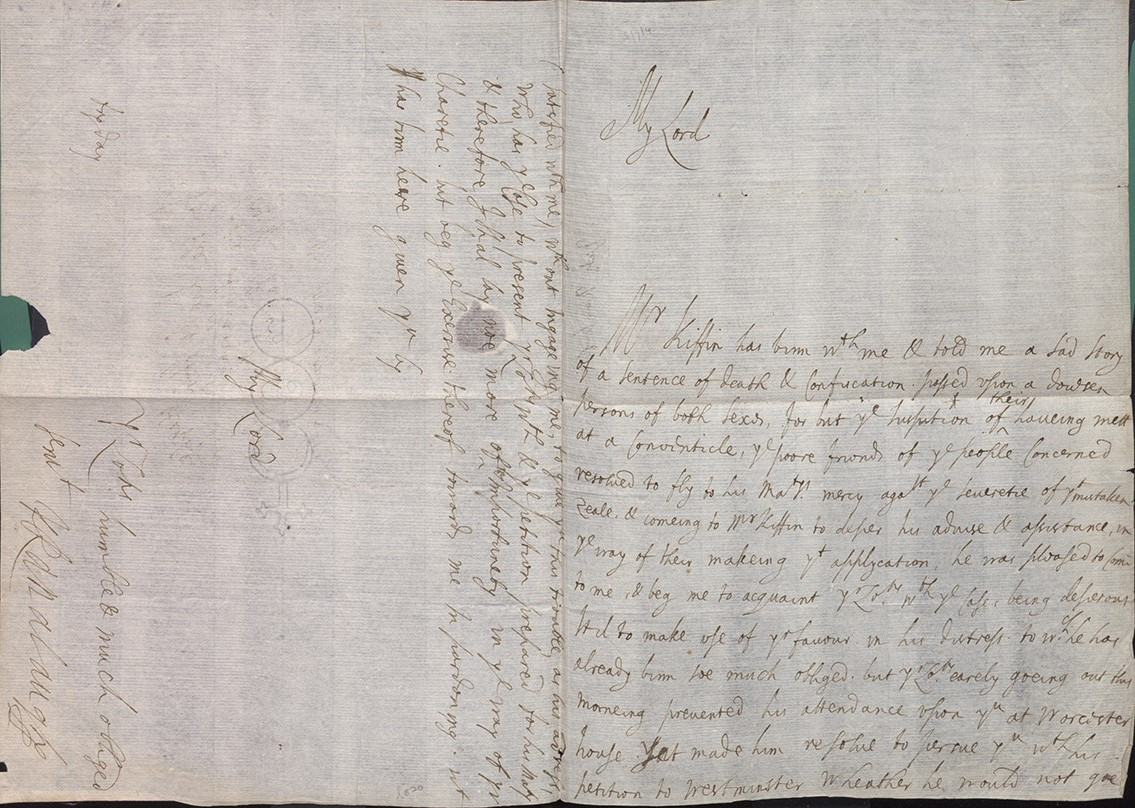 My Lord
Mr Kiffin has binn wth me & told me a sad story
of a sentence of death & Confiscation passed upon a dowsen
persons of both sexes, for but ye suspition of their haveing mett
at a Conventicle, ye poore friends of ye people Concerned
resolved to fly to his Matys mercy agast ye severetie of yt mistaken
zeale, & comeing to Mr Kiffin to desier his advise & assistance, in
ye way of their makeing yt applycation, he was pleased to Come
to me, & beg me to acquaint yr Lopp wth ye Case, being desierous
still to make use of yr favour in his distress to wch he has
already binn soe much obliged. but yr Lopps earely goeing out this
morneing prevented his attendance upon yu at Worcister
house yet made him resolve to persue yu wth his
petition to Westminster Wheather he would not goe
satisfied wth me, wthout Ingageing me, to give yu this trouble, as his adress,
who has ye Case to present yr Lopp wth & ye petition prepared for his Maty
& therefore I shal say noe more of opportunety in ye way of yr
Charetie. but beg ye Exercise thereof towards me In pardoning wt
has binn heere given yu by
My Lord
Yr Lopps humble & much obliged
servt
R Randalaugh
fryday